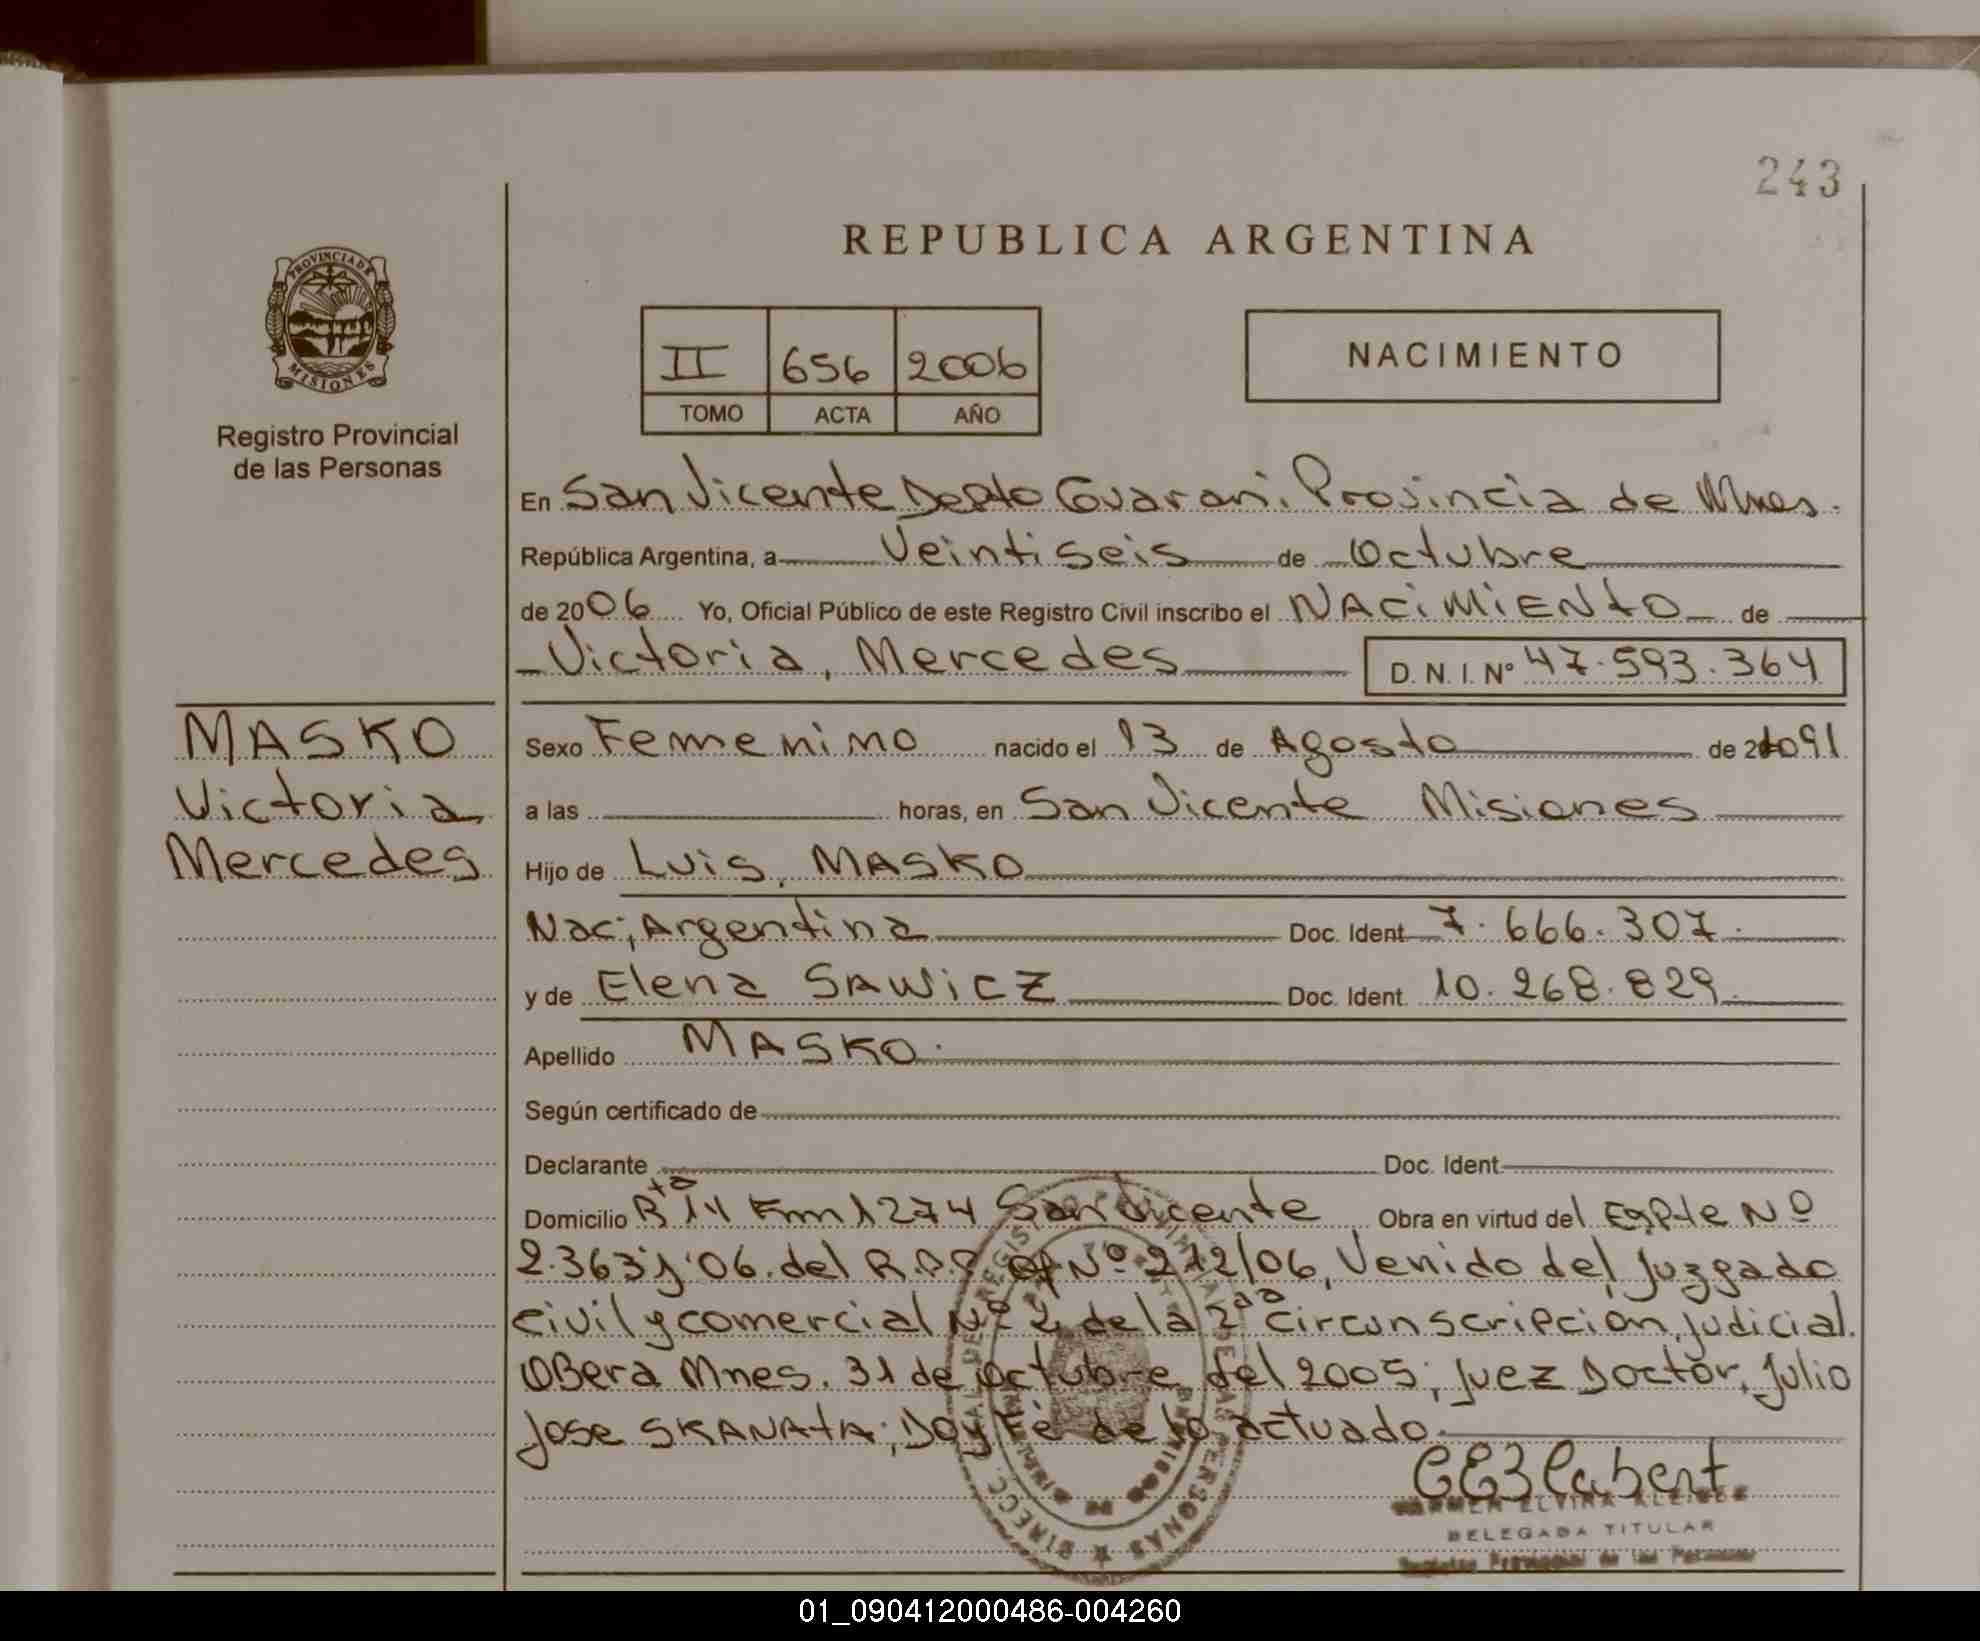 243
REPUBLICA ARGENTINA
PROVINCIA DE
MISIONES
Registro Provincial
de las Personas
II 656 2006
TOMO ACTA AÑO
NACIMIENTO
En San Vicente Depto Guarani. Provincia de Mnes.
República Argentina, a Veintiseis de Octubre
de 2006 Yo, Oficial Público de este Registro Civil inscribo el NACIMIENTO de
Victoria, Mercedes D. N. I. Nº 47.593.364
MASKO
Victoria
Mercedes
Sexo Femenino nacido el 13 de Agosto de 91
a las horas, en San Vicente Misiones
Hijo de Luis, MASKO
Nac; Argentina Doc. Ident. 7.666.307.
y de Elena SAWICZ Doc. Ident. 10.268.829.
Apellido MASKO.
Según certificado de
Declarante Doc. Ident.
Domicilio Rta 14 Km 1274 San Vicente Obra en virtud del Expte Nº
2.363 06. del R.P.P. of Nº 212/06, Venido del Juzgado
civil y comercial Nº 2 de la 2da circunscripcion, judicial.
OBera Mnes. 31 de octubre del 2005; juez Doctor, Julio
Jose SKANATA; Doy Fé de lo actuado.
CARMEN ELVIRA
DELEGADA TITULAR
Registro Provincial de las Personas
01_090412000486-004260